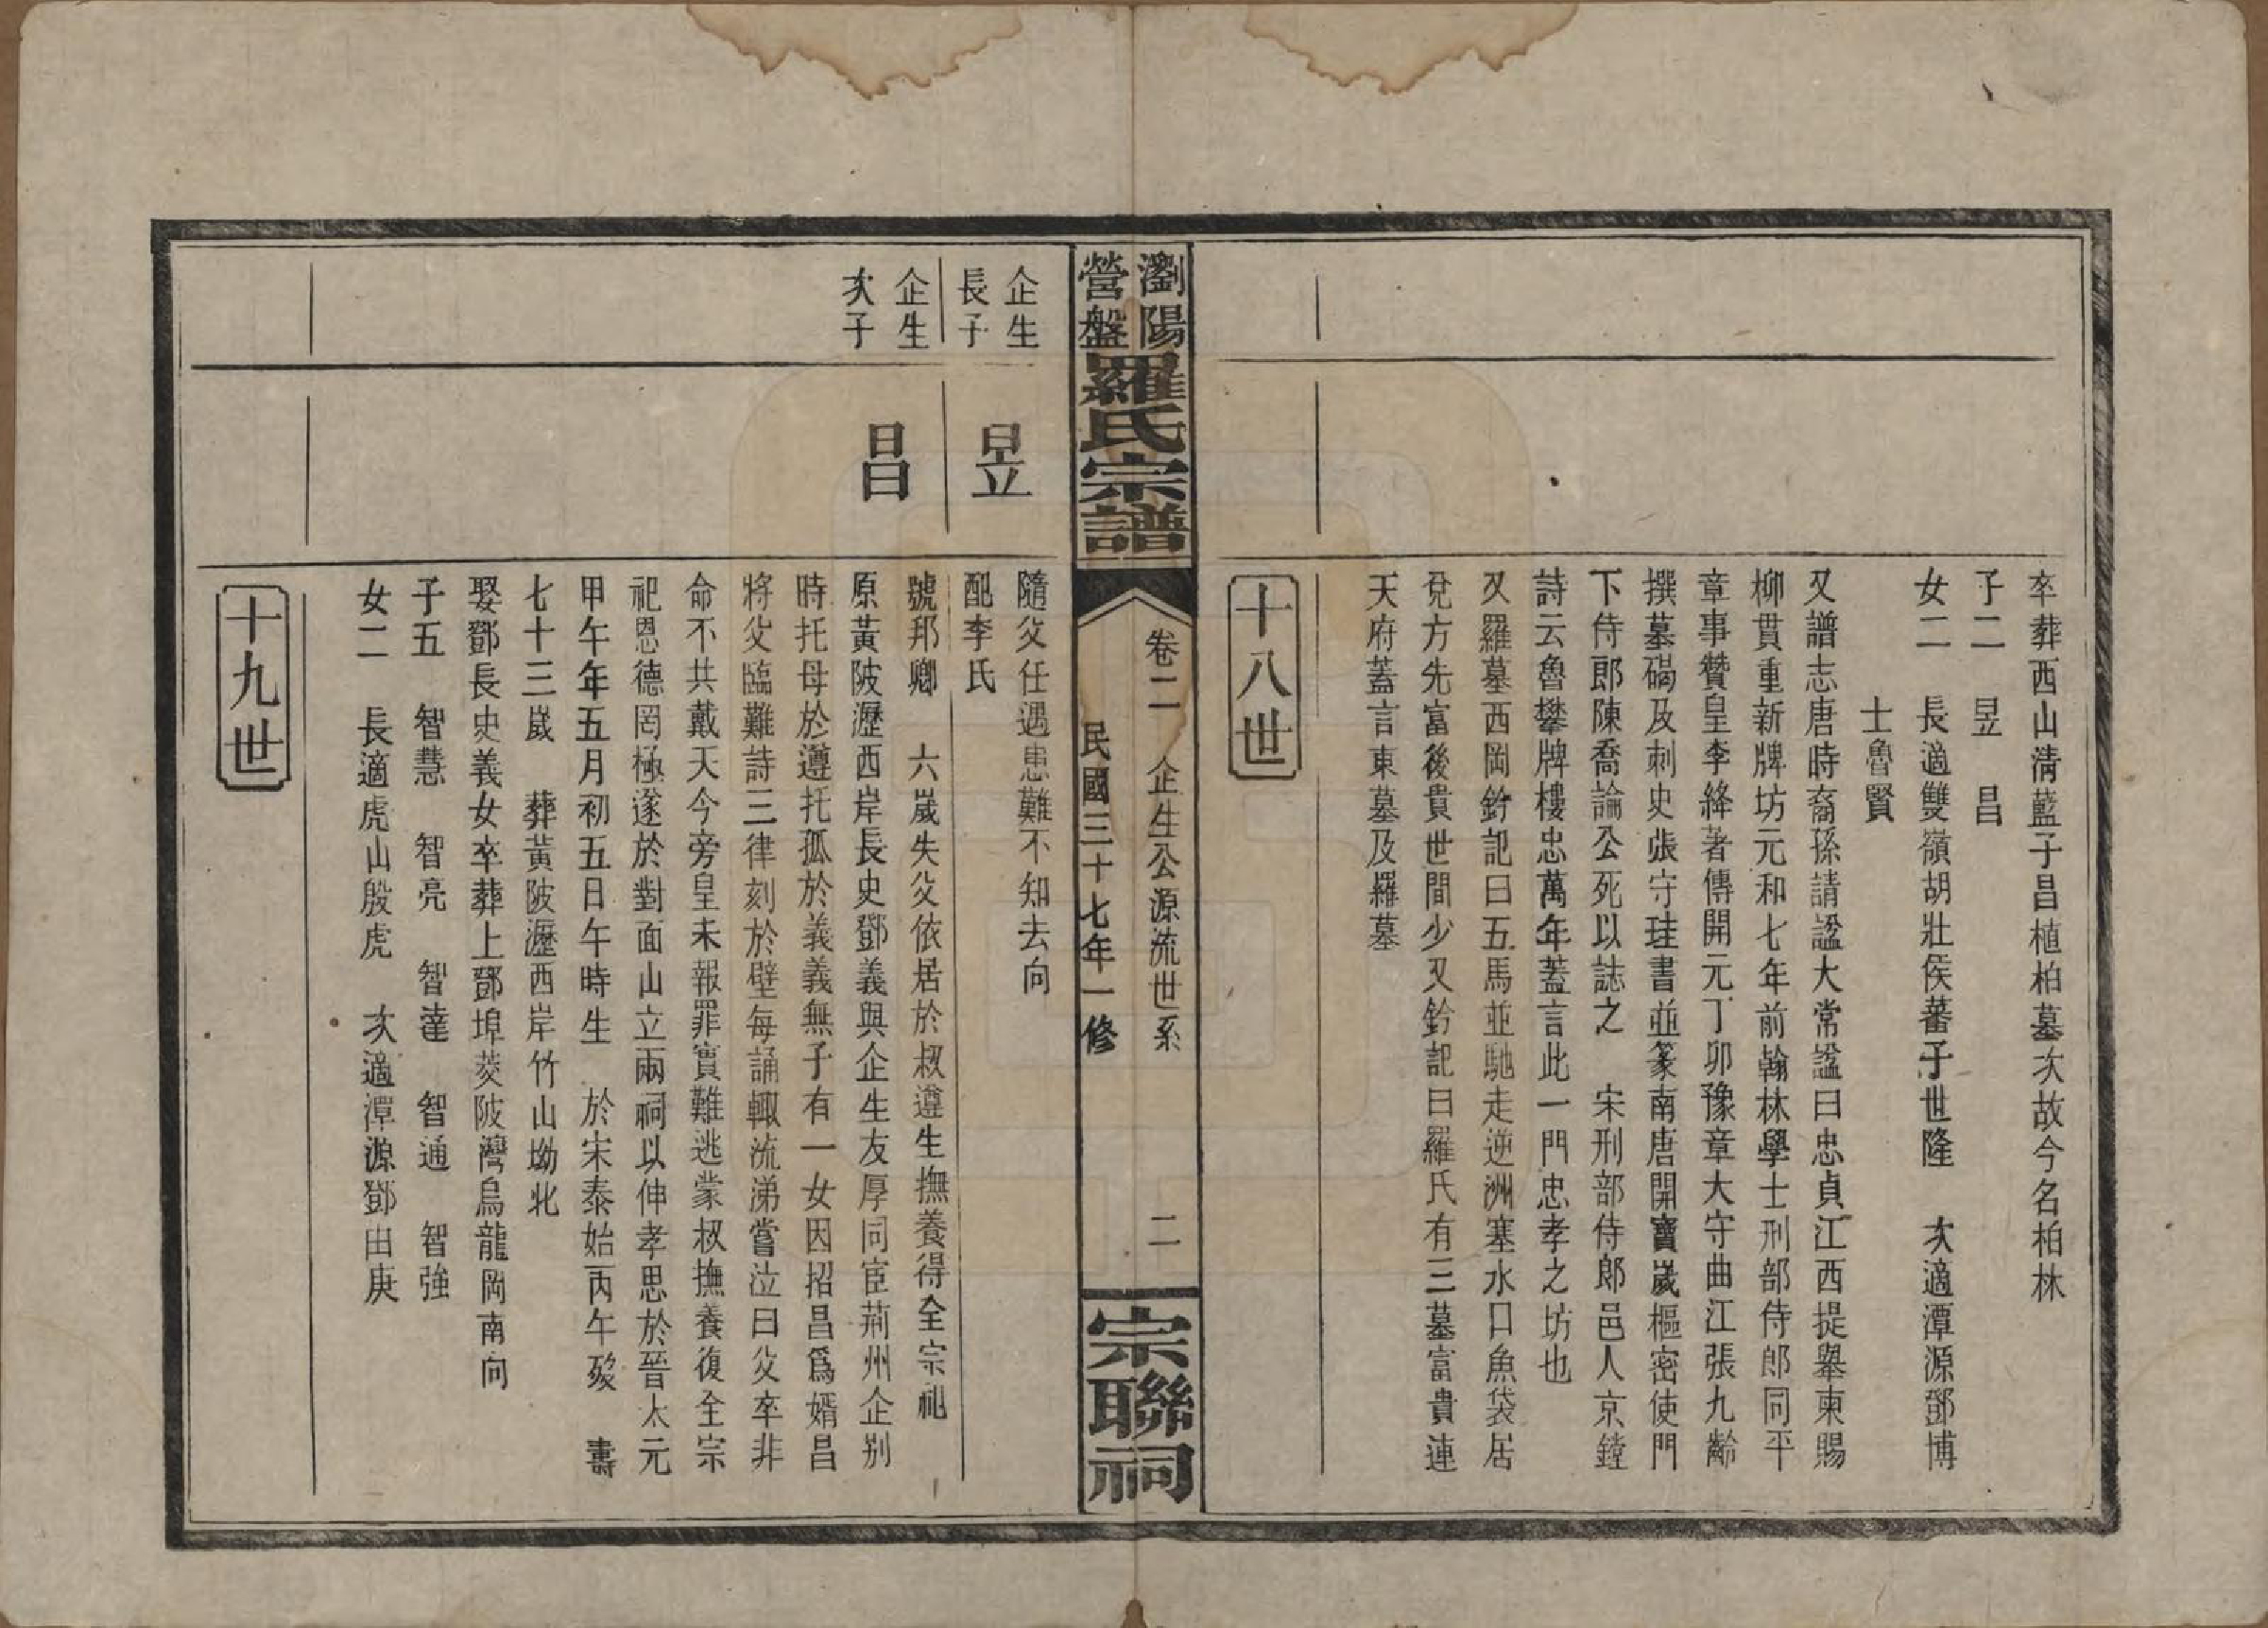 卒葬西山淸藍子昌植柏墓次故今名柏林
子二　昱　昌
女二　長適雙嶺胡壯侯蕃子世隆　次適潭源鄧博
士魯賢
又譜志唐時裔孫請諡大常諡曰忠貞江西提舉東賜
柳貫重新牌坊元和七年前翰林學士刑部侍郎同平
章事贊皇李絳著傳開元丁卯豫章大守曲江張九齡
撰墓碣及刺史張守珪書並篆南唐開寶嵗樞密使門
下侍郎陳喬論公死以誌之　宋刑部侍郎邑人京鏜
詩云魯攀牌樓忠萬年蓋言此一門忠孝之坊也
又羅墓西岡鈐記曰五馬並馳走逆洲塞水口魚袋居
兌方先富後貴世間少又鈐記曰羅氏有三墓富貴連
天府蓋言東墓及羅墓
十八世
瀏陽
營盤
羅氏宗譜
卷二　企生公源流世系　二
民國三十七年一修
宗聯祠
企生
長子
昱
隨父任遇患難不知去向
配李氏
企生
次子
昌
號邦鄉　六嵗失父依居於叔遵生撫養得全宗祀
原黃陂瀝西岸長史鄧義與企生友厚同宦荊州企别
時托母於遵托孤於義義無子有一女因招昌爲婿昌
將父臨難詩三律刻於壁每誦輒流涕嘗泣曰父卒非
命不共戴天今旁皇未報罪實難逃蒙叔撫養復全宗
祀恩德罔極遂於對面山立兩祠以伸孝思於晉太元
甲午年五月初五日午時生　於宋泰始丙午歿　壽
七十三嵗　葬黃陂瀝西岸竹山坳北
娶鄧長史義女卒葬上鄧埠菱陂灣烏龍岡南向
子五　智慧　智亮　智達　智通　智強
女二　長適虎山殷虎　次適潭源鄧由庚
十九世